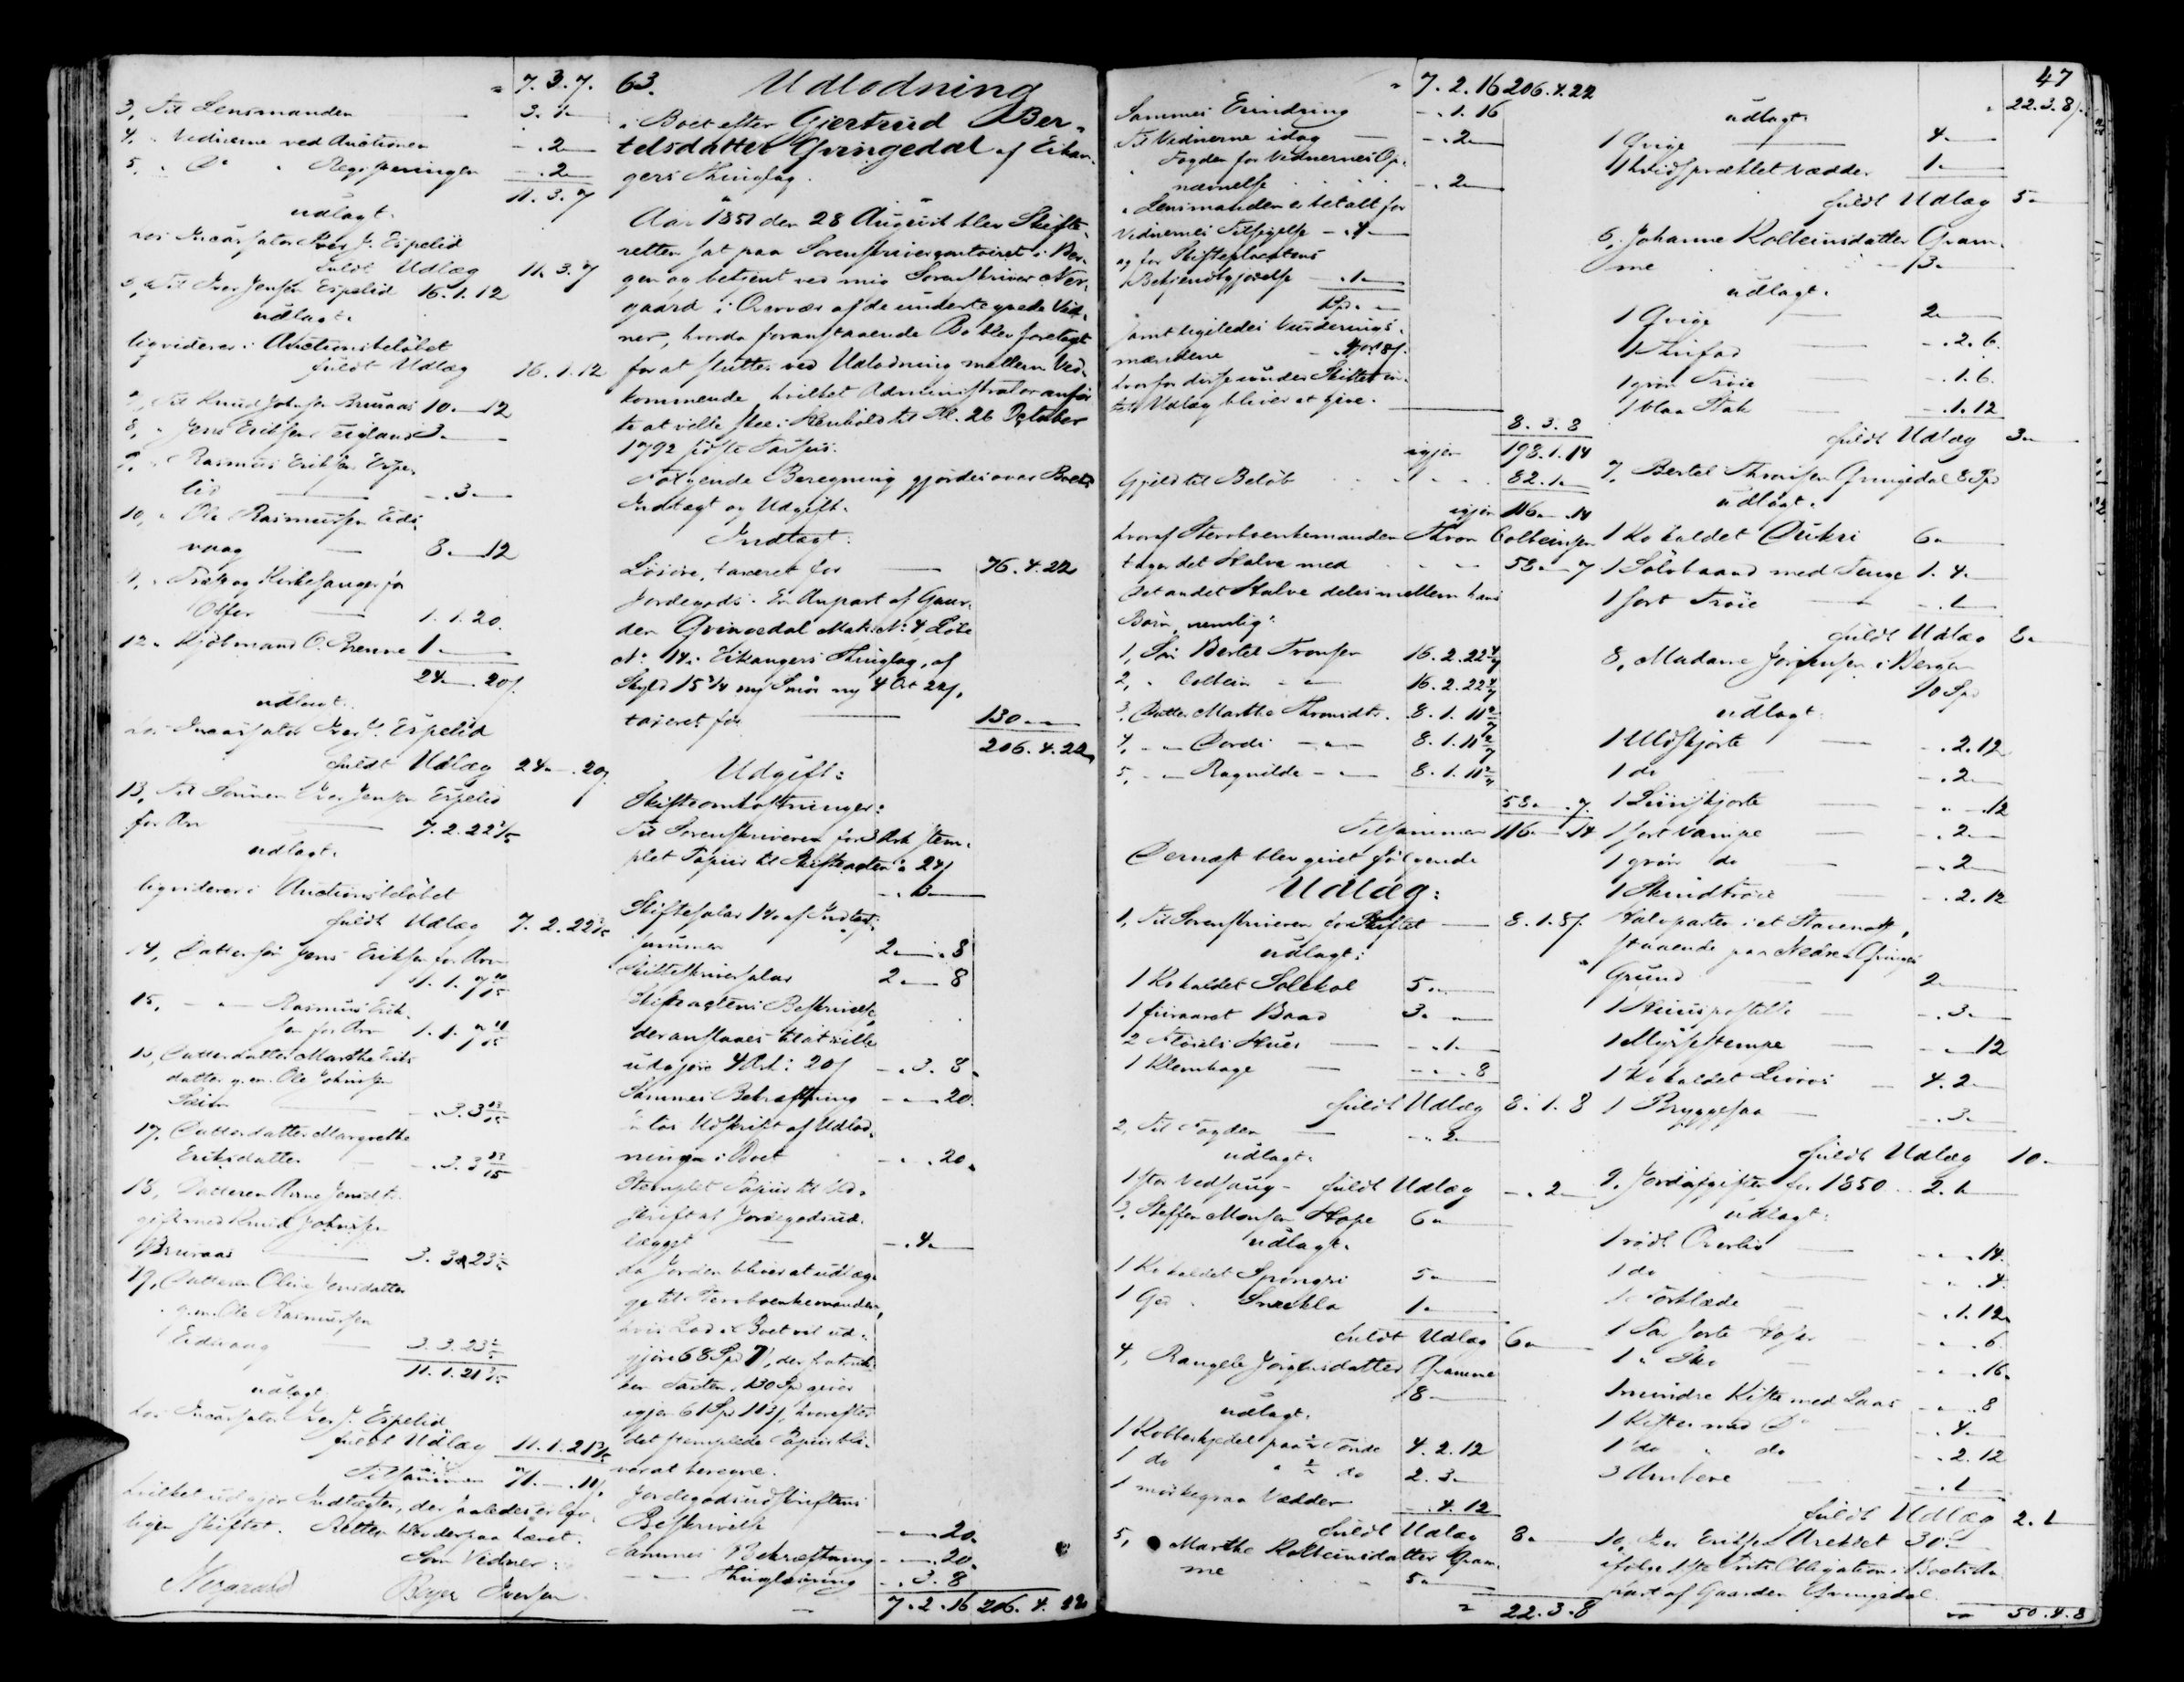 " 7. 3. 7.
3, Til Lensmanden 3. "
4, " Vidnerne ved Auctionen - . 2 -
5, " Do " Registreringen - . 2 -
11. 3. 7
udlagt.
hos Incassator Iver J. Espelid
fuldt Udlæg 11. 3. 7
6, Til Iver Jensen Espelid 16. 1. 12
udlagt.
ligvideres i Auctionsbeløbet
fuldt Udlæg 16. 1. 12
7, Til Knud Johnsen Bruraas 10. - 12
8, " Jens Eriksen 3. -
9, " Rasmus Eriksen Espe-
lid - . 3 -
10, " Ole Rasmussen Eids-
vaag 8. - 12
11, " Præst og Kirkesanger for
Offer 1. 1. 20.
12, " Kjøbmand C. Brenne 1. -
24. - 20 s.
udlagt.
hos Incassator Iver J. Espelid
fuldt Udlæg 24. - 20 s.
13, Til Sønnen Iver Jensen Espelid
for Arv 7. 2. 22
udlagt.
ligvideres i Auctionsbeløbet
fuldt Udlæg 7. 2. 22
14, Dattersøn Jens Eriksen for Arv
1. 1. 7
15, - " - Rasmus Erik-
sen for Arv 1. 1. 7
16, Datterdatter Marthe Eriks-
datter g. m. Ole Johnsen
- . 3. 3 13/15
17, Datterdatter Margrethe
Eriksdatter - . 3. 3 13/15
18, Datteren Anne Jensdtr.
gift med Knud Johnsen
Bruraas 3. 3. 23
19, Datteren Olive Jensdatter
g. m. Ole Rasmussen
Eidsvaag 3. 3. 23
11. 1. 21
udlagt.
hos Incassator Iver J. Espelid
fuldt Udlæg 11. 1. 21
Tilsammen 71. -
hvilket udgjør Indtægten, der saaledes er lov-
ligen skiftet. Retten blev derpaa hævet.
Som Vidner:
Nergaard Beyer Iversen
63. Udlodning
i Boet efter Gjertrud Ber-
telsdatter Qvingedal af Eikan-
gers Thinglag.
Aar 1851 den 28 August blev Skifte-
retten sat paa Sorenskrivercontoiret i Ber-
gen og betjent ved mig Sorenskriver Ner-
gaard i Overvær af de undertegnede Vid-
ner, hvorda foranstaaende Bo blev foretaget
for at sluttes ved Udlodning mellem Ved-
kommende hvilket Administrator anfør-
te at ville skee i Henhold til Pl. 26 October
1792 sidste Passus.
Følgende Beregning gjordes over Boets
Indtægt og Udgift.
Indtægt:
Løsøre, taxeret for 76. 4. 22
Jordegods: En Anpart af Gaar-
den Qvingedal Matr. No 4, Løbe
No 14 i Eikangers Thinglag, af
Skyld 15 3/4 mrk Smør ny 4 Ort 22 s,
taxeret for 130. - -
206. 4. 22
Udgift:
Skifteomkostninger:
Til Sorenskriveren for 3 Ark stem-
plet Papiir til Skifteacten a 24 s
- . 3 -
Skiftesalar 1% af Indtægts-
summen 2. - . 8
Skifteskriversalar 2. - 8
Skifteactens Beskrivelse,
der ansaaes til at ville
udgjøre 4 Ark: 20 s - . 3. 8.
Sammes Bekræftning - . - 20.
En løs Udskrift af Udlod-
ningen i Boet - . - 20.
Stemplet Papiir til Ud-
skrift af Jordegodsud-
lægget - . 4. -
da Jorden bliver at udlæg-
ge til Stervboenkemanden,
hvis Lod i Boet vil ud-
gjøre 68 Spd 7 s, der fratruk-
ken Taxten, 130 Spd giver
igjen 61 Spd, hvorefter
det stemplede Papiir bli-
ver at beregne.
Jordegodsudskriftens
Beskrivelse - . - 20.
Sammes Bekræftning - . - 20.
- " - Thinglæsning - . 3. 8
7. 2. 16 206. 4. 22
" 7. 2. 16 206. 4. 22
Sammes Erindring - . 1. 16
Til Vidnerne idag - . 2 -
" Fogden for Vidnernes Op-
nævnelse - . 2 -
" Lensmanden er betalt for
Vidnernes Tilsigelse - . 4 -
og for Skifteplacatens
Bekjendtgjørelse - . 1. -
1 Spd. - -
samt ligeledes Vurderings-
mændene
hvorfor disse under Skiftet in-
tet Udlæg bliver at give.
8. 3. 8
igjen 198. 1. 14
Gjeld til Beløb 82. 1. -
igjen 116. - . 14
hvoraf Stervboenkemanden Thron Colbeinsen
tager det Halve med 58. - 7
Det andet Halve deles mellem hans
Børn, nemlig:
1, Søn Bertel Tronsen 16. 2. 22 4/7
2, " Colbein - " - 16. 2. 22 4/7
3, Datter Marthe Thronsdtr. 8. 1. 11 2/7
4, - " - Dordi - " - 8. 1. 11 2/7
5, - " - Ragnilde - " - 8. 1. 11 2/7
58. - . 7.
Tilsammen 116. - . 14
Dernæst blev givet følgende
Udlæg:
1, Til Sorenskriveren for Skiftet 8. 1. 8 s.
udlagt:
1 Ko kaldet Solekol 5. -
1 fiiraaret Baad 3. -
2 Huer - . 1. -
1 Klemhage - . - . 8
fuldt Udlæg 8. 1. 8
2, Til Fogden - . 2 -
udlagt.
1 stor Vedsaug - fuldt Udlæg - . 2 -
3, Steffen Monsen Hope 6. "
udlagt.
1 Ko kaldet Spongri 5. -
1 Gjed " Snækla 1. -
fuldt Udlæg 6. "
4, Rangele Jørgensdatter Gramme
8. -
udlagt.
1 Kobberkjedel paa 1/2 Tønde 4. 2. 12
1 do " do 2. 3. -
1 mørkegraa Vædder - . 4. 12
fuldt Udlæg 8. -
5, Marthe Kolbeinsdatter Gram-
me 5. -
" 22. 3. 8
47
" 22. 3. 8 s.
udlagt.
1 Qvige 4. -
1 hvidsprættlet Vædder 1. -
fuldt Udlæg 5. -
6, Johanne Kolbeinsdatter Gram-
me 3. -
udlagt.
1 Qvige 2. -
1 - . 2. 6.
1 grøn Trøie - . 1. 6.
1 blaa Stak - . 1. 12
fuldt Udlæg 3. -
7, Bertel Thronsen Qvingedal 8 Spd
udlagt.
1 Ko kaldet 6. -
1 Sølvbaand med Penge 1. 4. -
1 sort Trøie - . 1
fuldt Udlæg 8. -
8, Madame Jørgensen i Bergen
10 Spd
udlagt.
1 Uldskjorte - . 2. 12
1 do - . 2 -
1 Liinskjorte " - . 12
1 sort Vampe - . 2 -
1 grøn do - . 2
1 Skindtrøie - . 2. 12
Halvparten i et Stavenøst,
staaende paa Nedre Qvinges
Grund 2. -
1 - . 3. -
1 - . - 12
1 Ko kaldet 4. 2. -
1 Bryggesaa - . 3. -
fuldt Udlæg 10. -
9, Jordafgiften for 1850 2. 1. -
udlagt.
1 rødt Overliv - . - . 14.
1 do " . 4
1 Forklæde - . 1. 12.
1 Par sorte Hoser - . - . 6
1 " Sko - . - . 16.
1 mindre Kiste med Laas - . - . 8
1 Kiste med Do - . 4. -
1 do " do - . 2. 12
3 Ambere - . 1
fuldt Udlæg 2. 1
10, Eriksen 30. -
ifølge Obligation i Boets An-
part af Gaarden Qvingedal
" 50. 4. 8